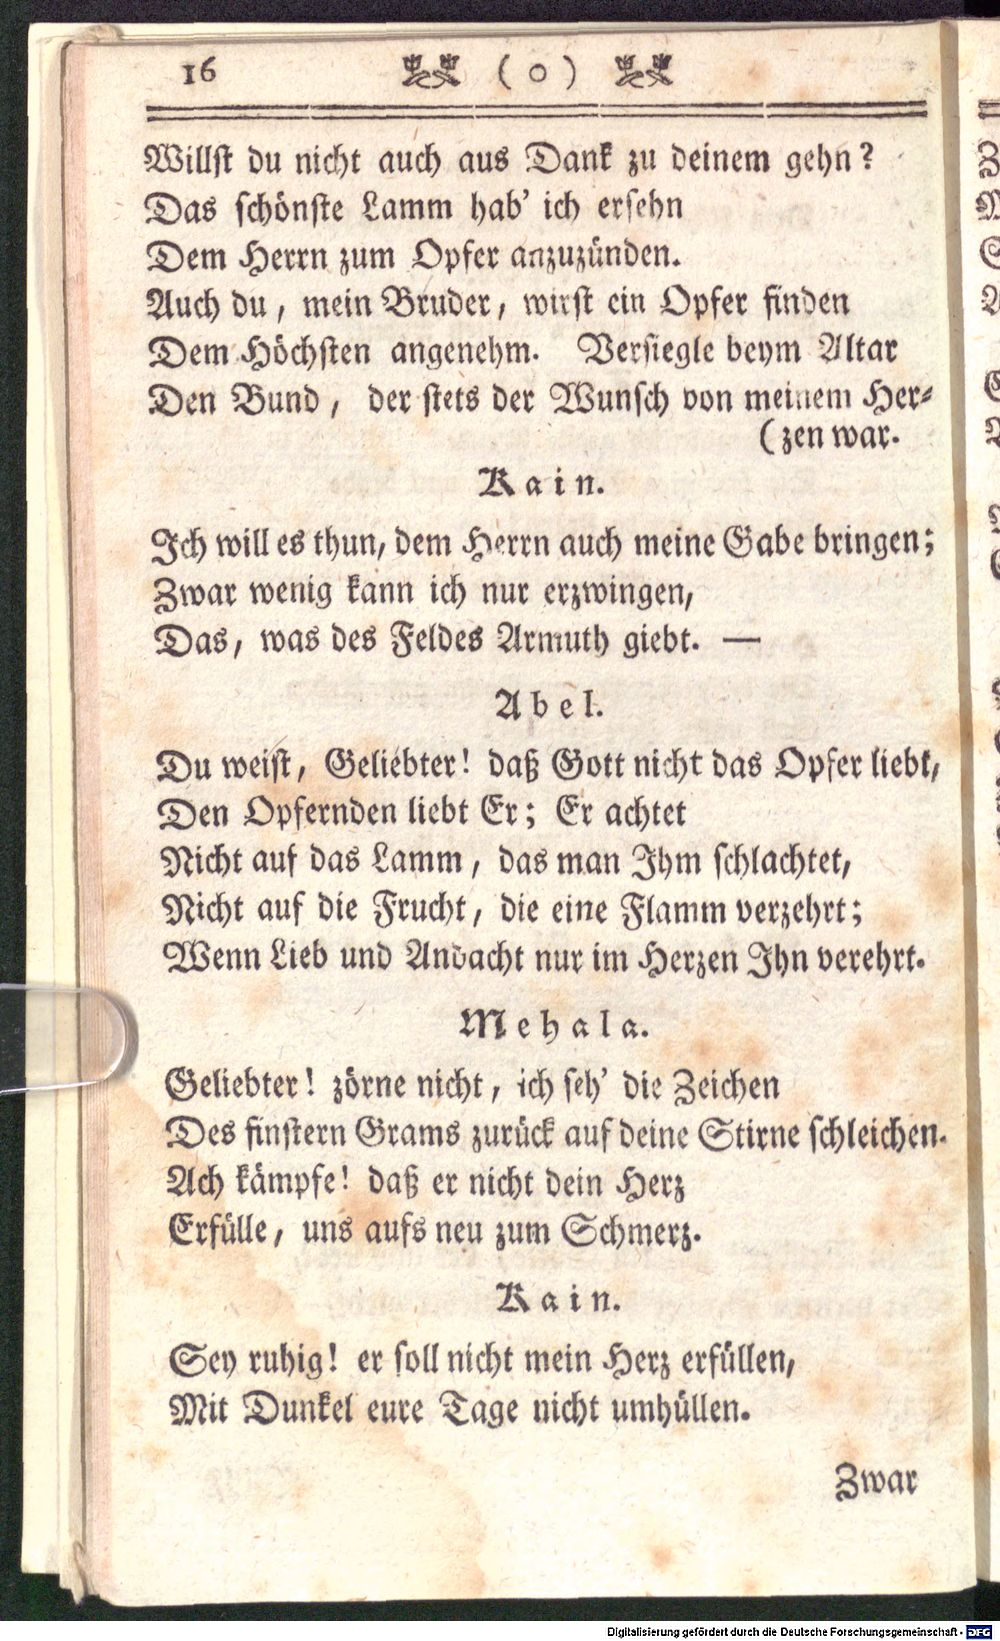 16 ( o )
Willst du nicht auch aus Dank zu deinem gehn?
Das schönste Lamm hab' ich ersehn
Dem Herrn zum Opfer anzuzünden.
Auch du, mein Bruder, wirst ein Opfer finden
Dem Höchsten angenehm. Versiegle beym Altar
Den Bund, der stets der Wunsch von meinem Her-
(zen war.
Kain.
Ich will es thun, dem Herrn auch meine Gabe bringen;
Zwar wenig kann ich nur erzwingen,
Das, was des Feldes Armuth giebt. —
Abel.
Du weist, Geliebter! daß Gott nicht das Opfer liebt,
Den Opfernden liebt Er; Er achtet
Nicht auf das Lamm, das man Ihm schlachtet,
Nicht auf die Frucht, die eine Flamm verzehrt;
Wenn Lieb und Andacht nur im Herzen Ihn verehrt.
Mehala.
Geliebter! zörne nicht, ich seh' die Zeichen
Des finstern Grams zurück auf deine Stirne schleichen.
Ach kämpfe! daß er nicht dein Herz
Erfülle, uns aufs neu zum Schmerz.
Kain.
Sey ruhig! er soll nicht mein Herz erfüllen,
Mit Dunkel eure Tage nicht umhüllen.
Zwar
Digitalisierung gefördert durch die Deutsche Forschungsgemeinschaft - DFG